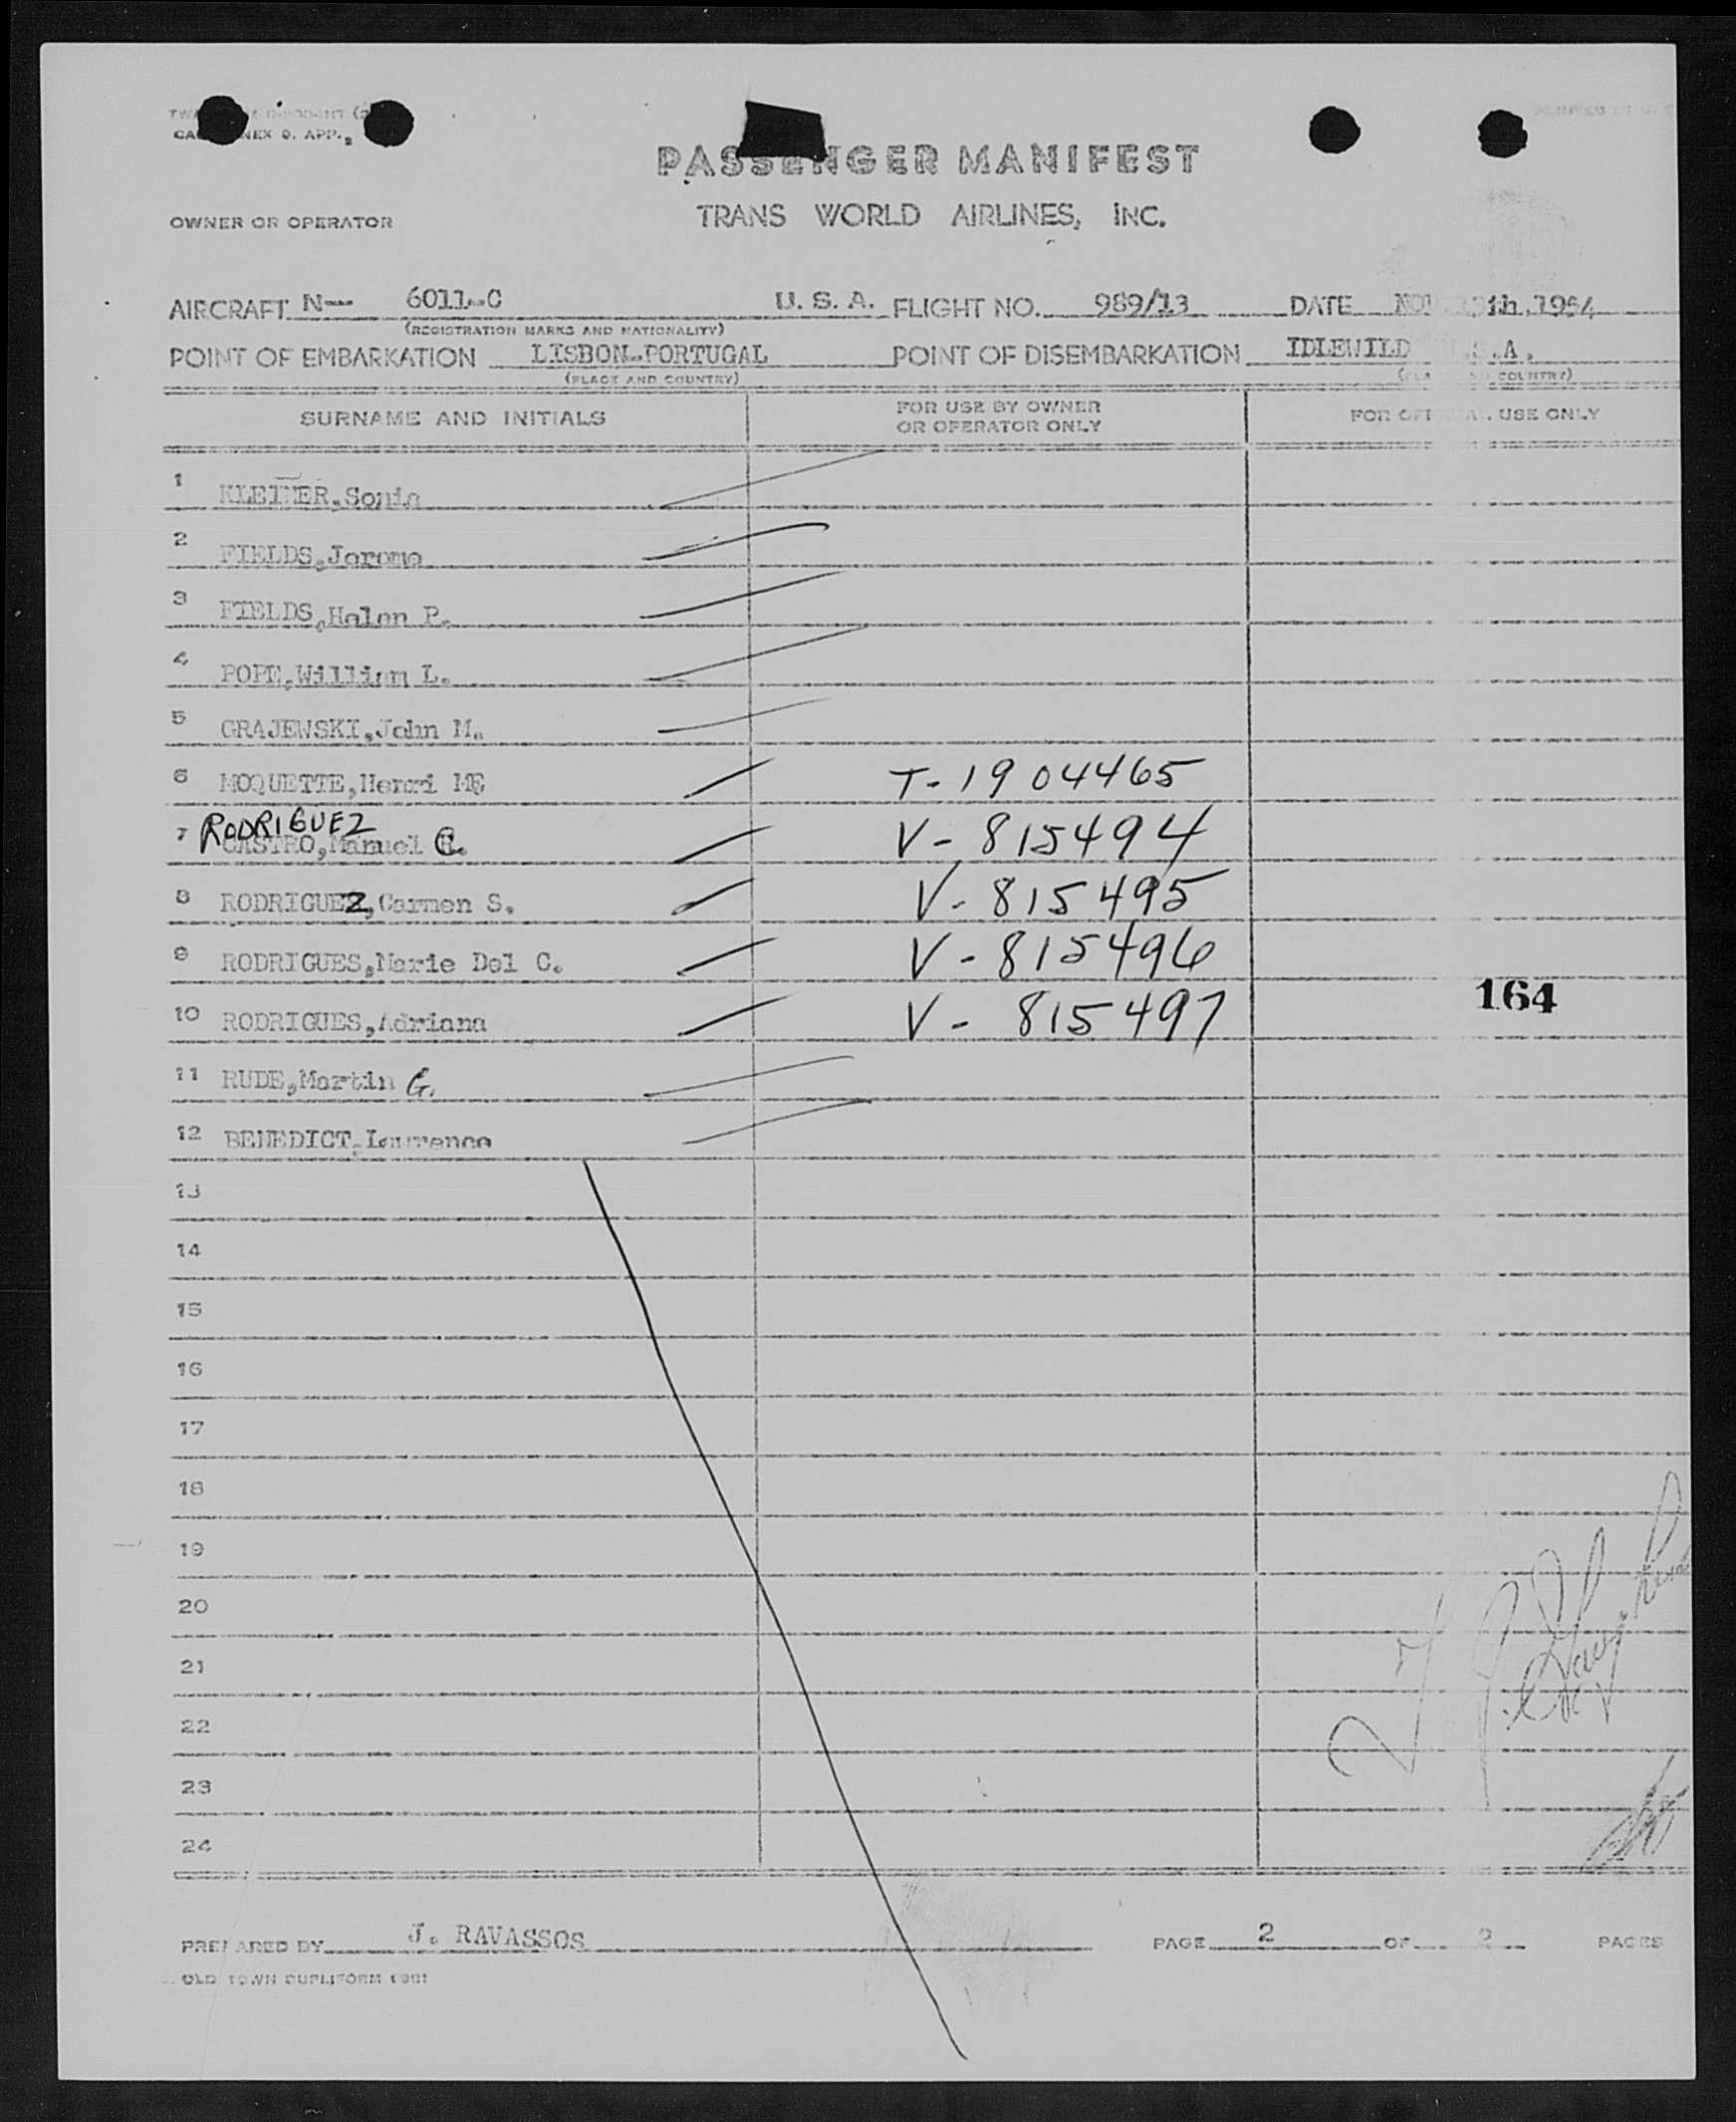 PASSENGER MANIFEST
OWNER OR OPERATOR
TRANS WORLD AIRLINES, INC.
AIRCRAFT N-- 6011-C U. S. A. FLIGHT NO. 989/13 DATE
(REGISTRATION MARKS AND NATIONALITY)
POINT OF EMBARKATION LISBON-PORTUGAL POINT OF DISEMBARKATION IDLEWILD
(PLACE AND COUNTRY)
SURNAME AND INITIALS
FOR USE BY OWNER
OR OPERATOR ONLY
USE ONLY
1 KLEINER,Sonia
2 FIELDS,Jerome
3 FIELDS,Helen P.
4 POPE,William L.
5 GRAJEWSKI,John M.
6 MOQUETTE,Henri T-1904465
RODRIGUEZ
7 CASTRO,Manuel C. V-815494
8 RODRIGUEZ,Carmen S. V-815495
9 RODRIGUES,Marie Del C. V-815496
164
10 RODRIGUES,Adriana V-815497
11 RUDE,Martin G.
12 BENEDICT,Laurence
13
14
15
16
17
18
19
20
21
22
23
24
PREPARED BY J. RAVASSOS PAGE 2 OF 2 PAGES
OLD TOWN DUPLIFORM